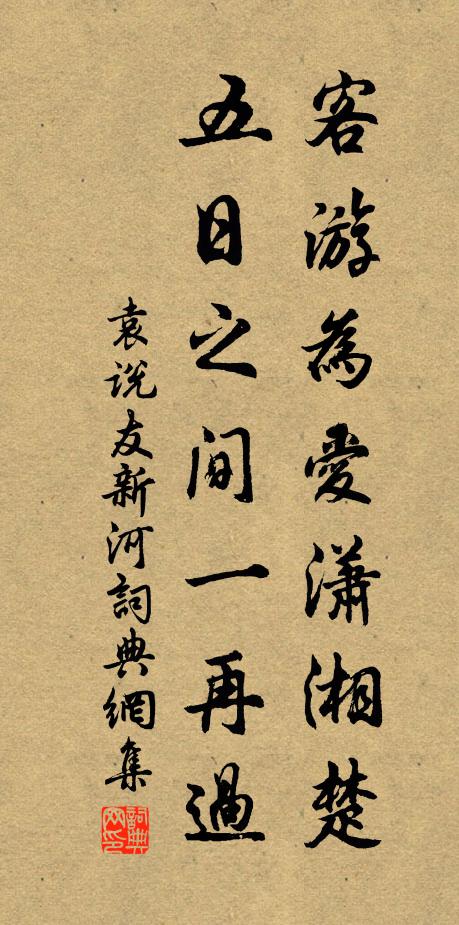 客游為愛瀟湘楚
五日之間一再過
袁说友新河詞典網集
詞典網印